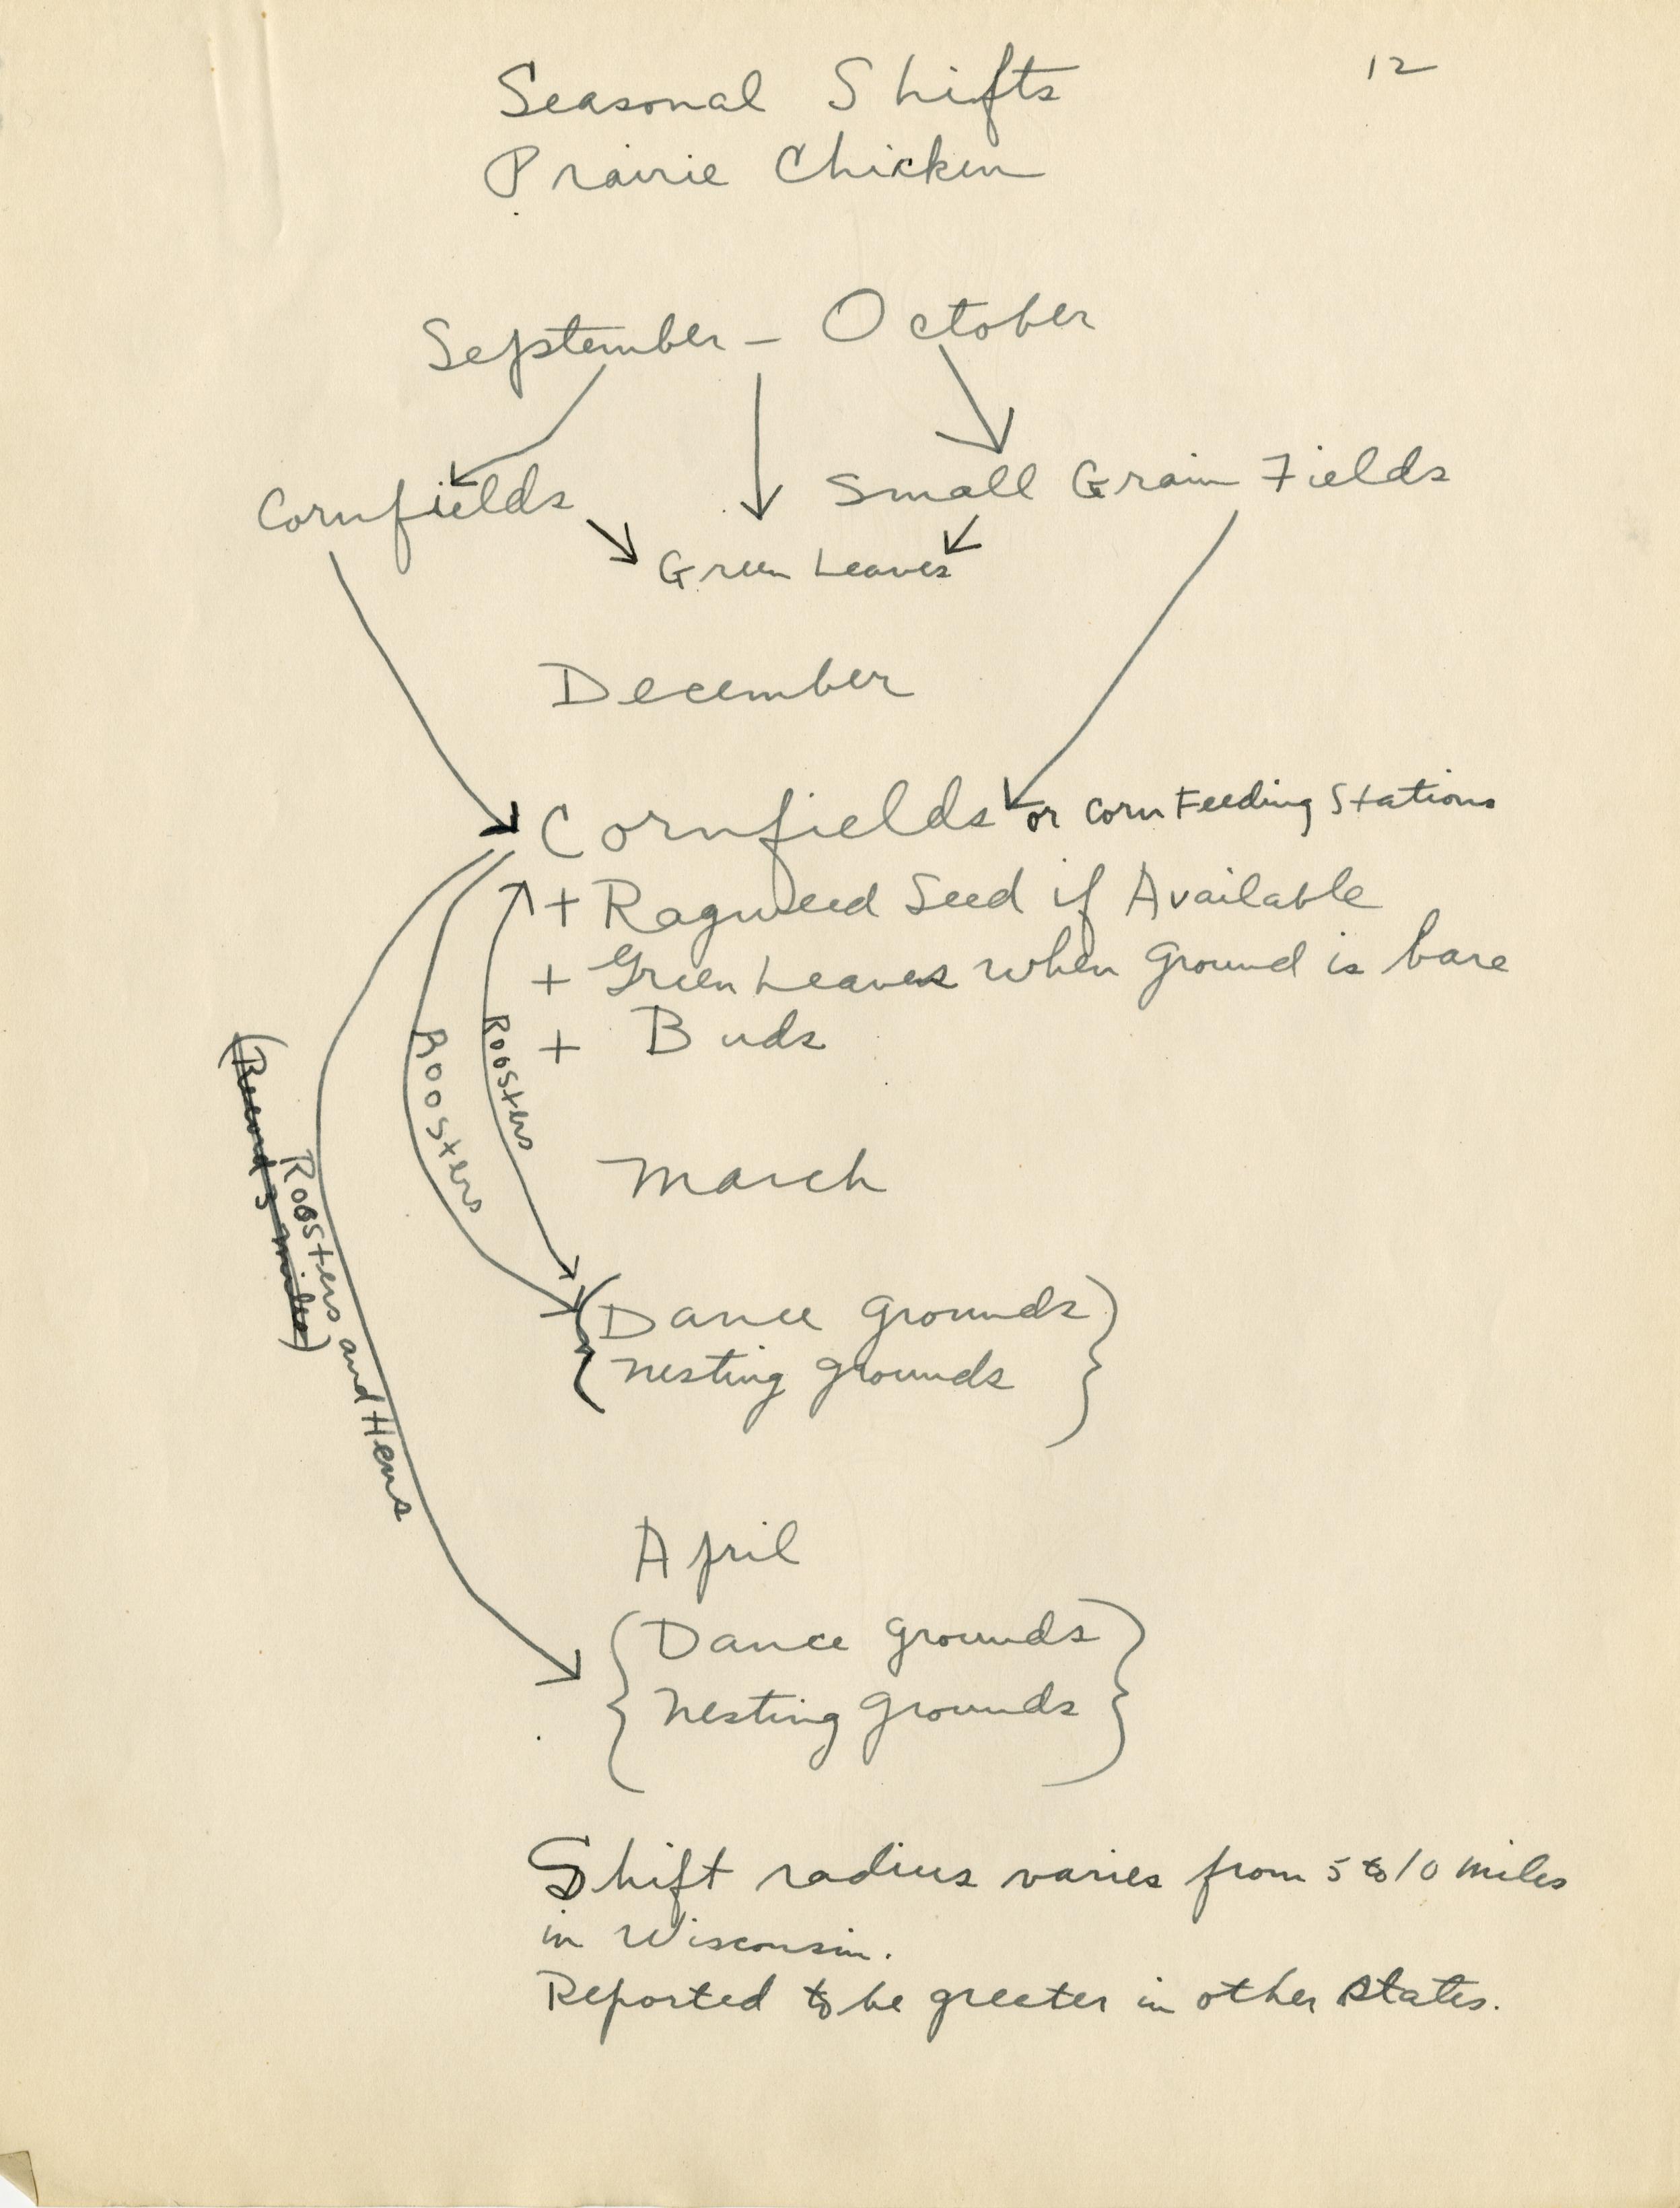 12
Seasonal Shifts
Prairie Chicken
September - October
Cornfields
Small Grain Fields
Green Leaves
December
Cornfields or Corn Feeding Stations
+ Ragweed Seed if Available
+ Green Leaves when ground is bare
+ Buds
Roosters
Roosters
(Record 3 miles)
Roosters and Hens
March
{Dance grounds
nesting grounds}
April
{Dance grounds
nesting grounds}
Shift radius varies from 5 to 10 miles
in Wisconsin.
Reported to be greeter in other states.